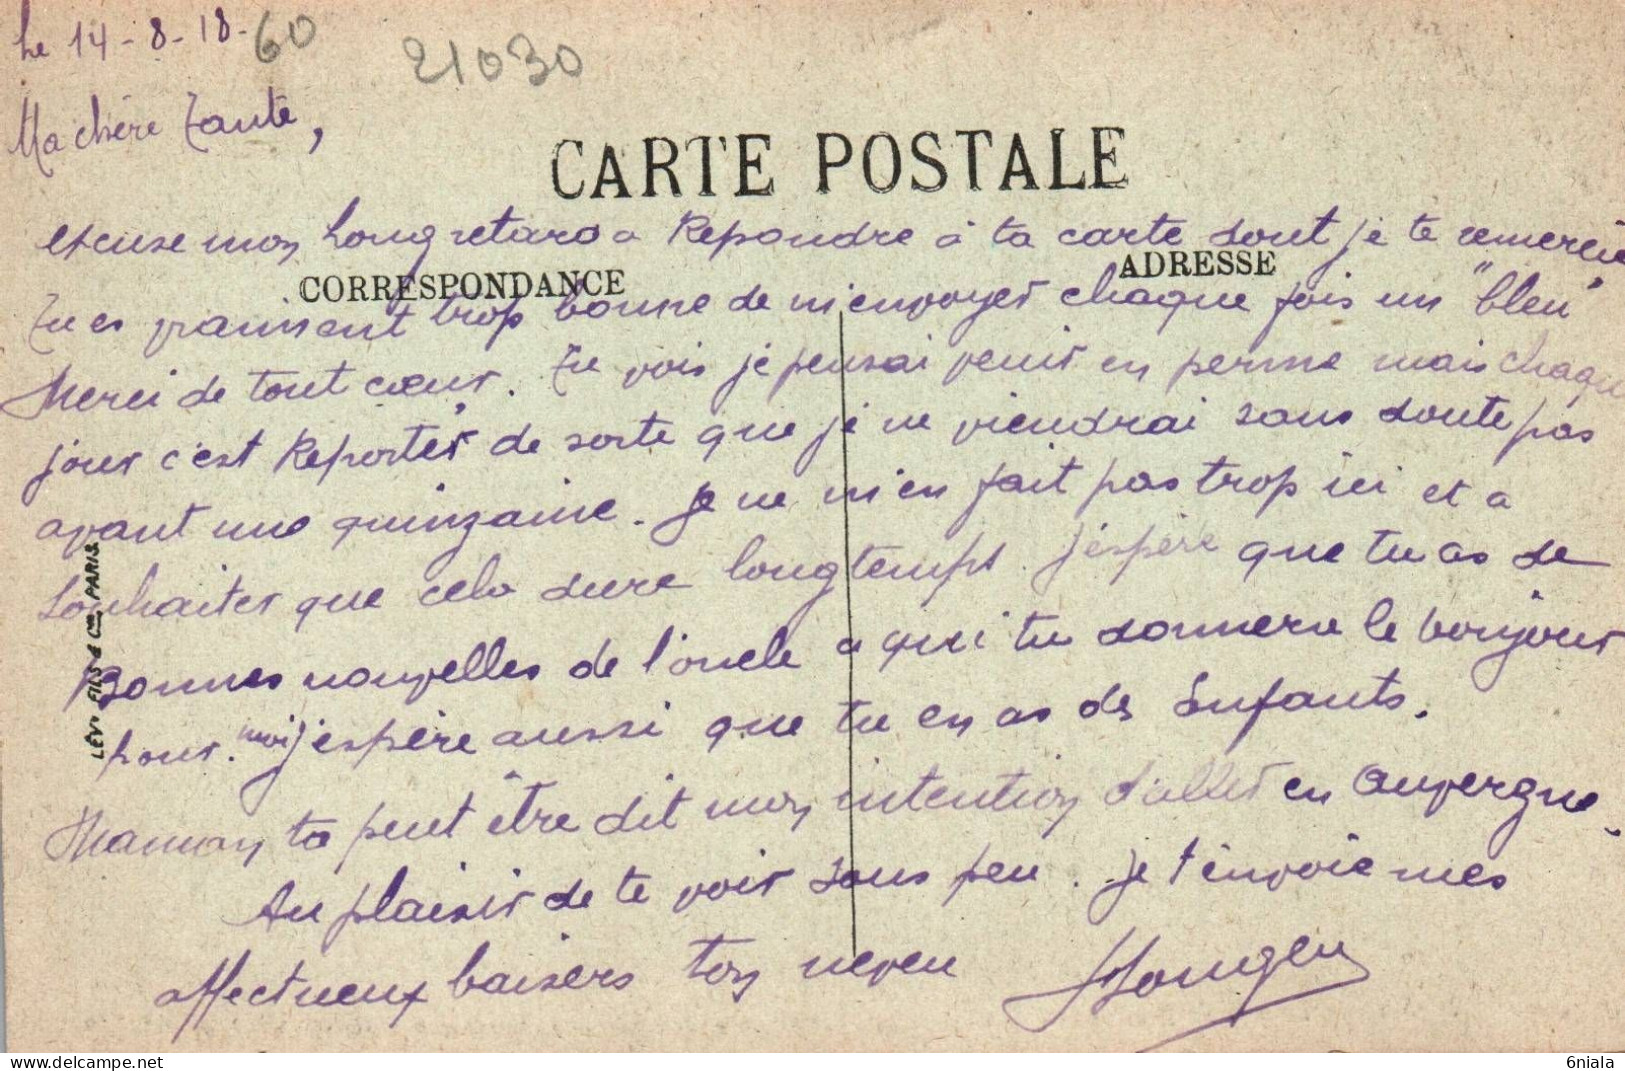 Le 14-8-18-
60
21030
Ma chère Tante,
CARTE POSTALE
excuse mon long retard a Repondre à ta carte dont je te remercie
CORRESPONDANCE
ADRESSE
Tu es vraiment trop bonne de m'envoyer chaque fois un "bleu"
Merci de tout cœur. Tu vois je pensai venir en perme mais chaque
jour c'est Reporter de sorte que je ne viendrai sans doute pas
avant une quinzaine. Je ne m'en fait pas trop ici et a
souhaiter que cela dure longtemps. J'espère que tu as de
Bonnes nouvelles de l'oncle a qui tu donnera le bonjour
pour moi. j'espère aussi que tu en as des Enfants.
Maman ta peut être dit mon intention d'aller en Auvergne.
Au plaisir de te voir sous peu. Je t'envoie mes
affectueux baisers ton neveu
LÉVY FILS & Cie, PARIS
6niala